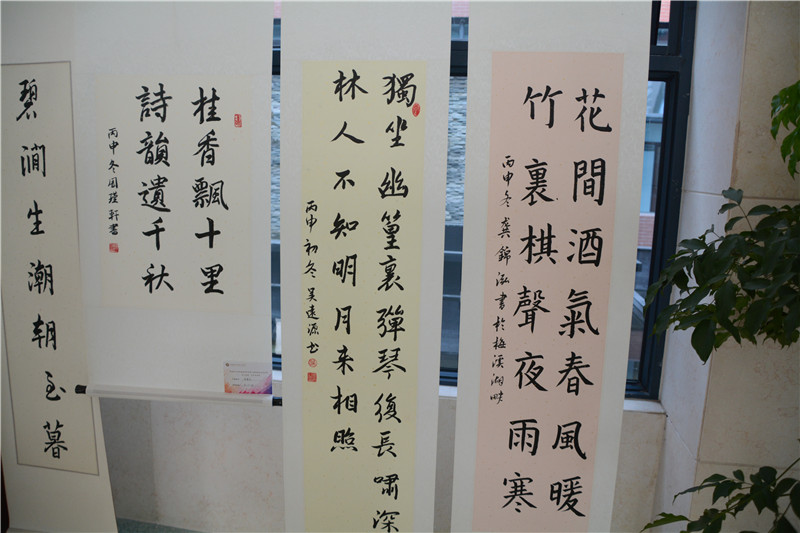 花間酒氣春風暖
竹裏棋聲夜雨寒
丙申冬龔錦泓書於梅溪湖畔
獨坐幽篁裏彈琴復長嘯深
林人不知明月来相照
丙申初冬吴遠源书
桂香飄十里
詩韻遺千秋
丙申冬周瑾軒書
碧澗生潮朝至暮